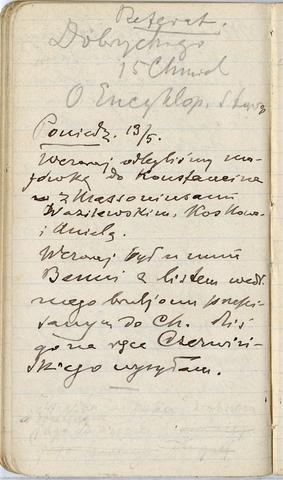 Referat.
Dobrychego
15 Chmiel
O Encyklop. Star
Poniedz. 13/5.
Wczoraj odbyliśmy ma-
jówkę do Konstancina
z Massoniusami
Wasilewskim, Koskowa-
i Anielą.
Wczoraj był u mnie
Bennis z listem wedł.
mego bruljonu przepi-
sanym do Ch. Dziś
go na ręce Czerwiń-
skiego wysyłam.